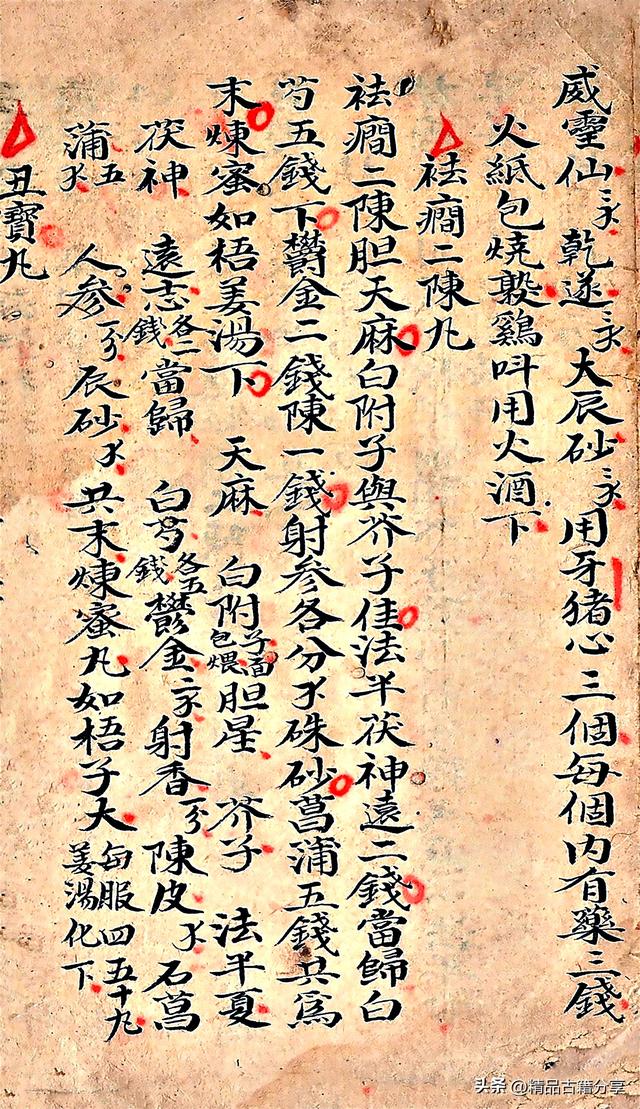 威靈仙三 乾遂三 大辰砂三 用牙猪心三個每個内有藥三錢
火紙包燒熟鷄叫用火酒下
祛癎二陳丸
祛癎二陳胆天麻白附子與芥子佳法半茯神遠二錢當歸白
芍五錢下欝金二錢陳一錢射參各分硃砂菖蒲五錢共爲
末煉蜜如梧姜湯下 天麻 白附子面包煨胆星 芥子 法半夏
茯神 遠志各二錢當歸 白芍各五錢欝金二 射香一分陳皮 石菖
蒲五 人參一分 辰砂 共末煉蜜丸如梧子大每服四五十丸姜湯化下
丑寶丸
头条 @精品古籍分享